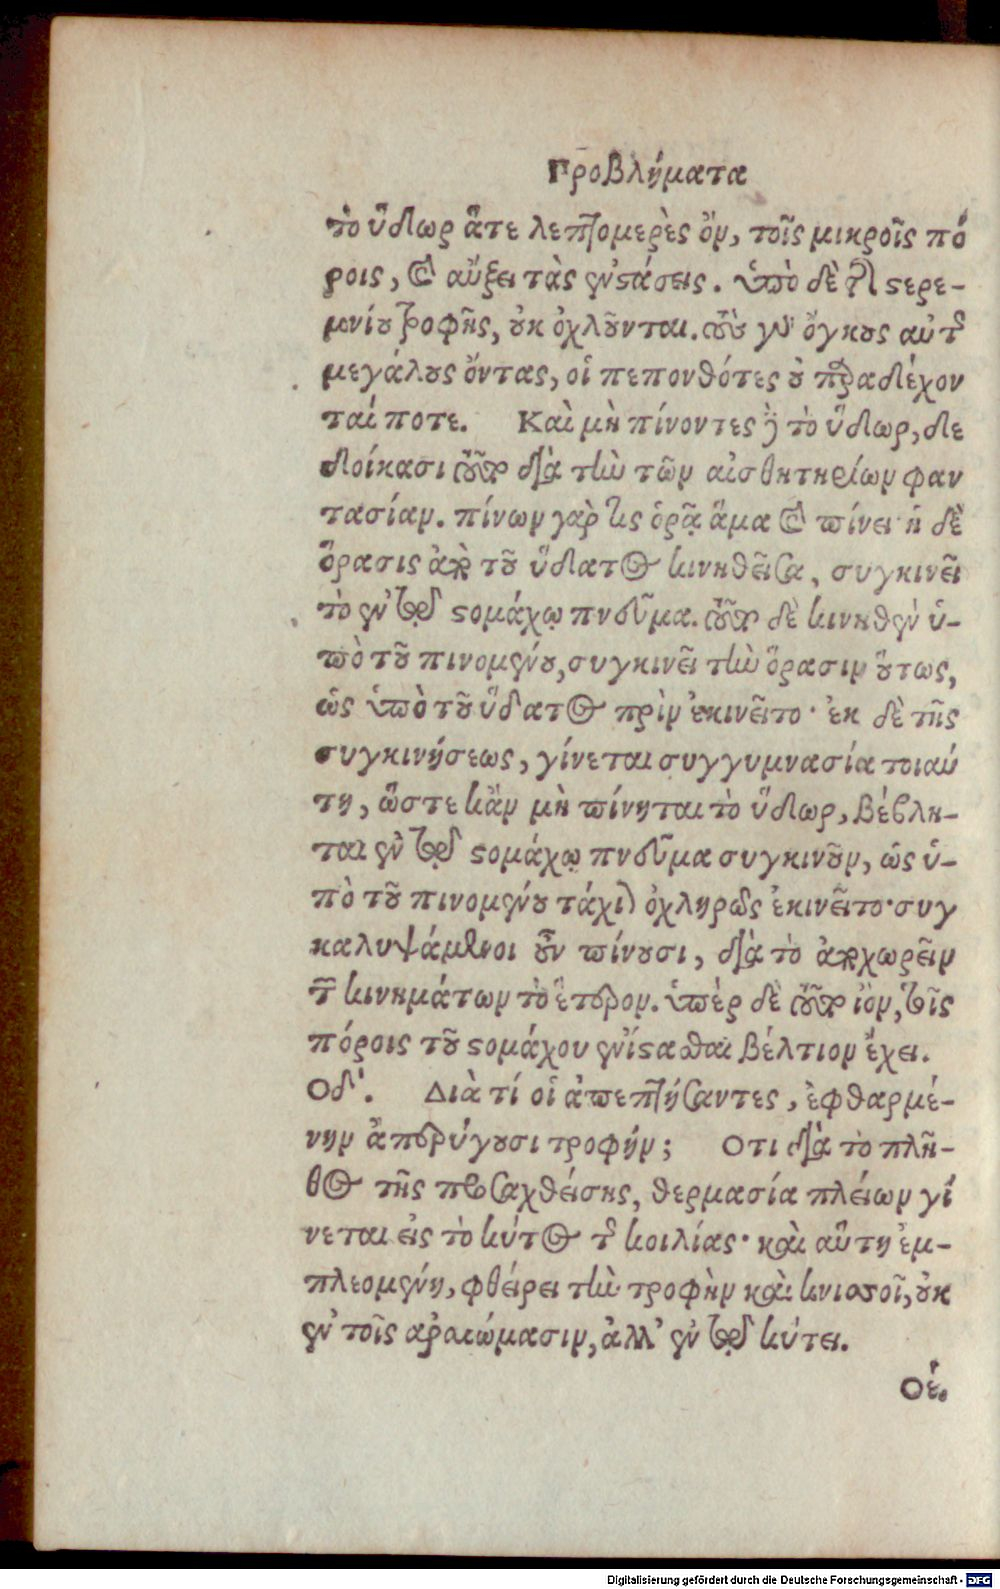 Προβλήματα
τὸ ὕδωρ ἅτε λεπτομερὲς ὂν, τοῖς μικροῖς πό
ροις, καὶ αὔξει τὰς ἐνστάσεις. ὑπὸ δὲ τῆς στερε-
μνίου τροφῆς, οὐκ ὀχλοῦνται. τοὺς γὰρ ὄγκους αὐτῆς
μεγάλους ὄντας, οἱ πεπονθότες οὐ παραδέχον
ταί ποτε. Καὶ μὴ πίνοντες δὲ τὸ ὕδωρ, δε
δοίκασι τοῦτο διὰ τὴν τῶν αἰσθητηρίων φαν
τασίαν. πίνων γὰρ τις ὁρᾷ ἅμα καὶ πίνει ἡ δὲ
ὅρασις ἀπὸ τοῦ ὕδατος κινηθεῖσα, συγκινεῖ
τὸ ἐν τῷ στομάχῳ πνεῦμα. τοῦτο δὲ κινηθὲν ὑ-
πὸ τοῦ πινομένου, συγκινεῖ τὴν ὅρασιν οὕτως,
ὡς ὑπὸ τοῦ ὕδατος πρὶν ἐκινεῖτο· ἐκ δὲ τῆς
συγκινήσεως, γίνεται συγγυμνασία τοιαύ
τη, ὥστε κἂν μὴ πίνηται τὸ ὕδωρ, βέβλη-
ται ἐν τῷ στομάχῳ πνεῦμα συγκινοῦν, ὡς ὑ-
πὸ τοῦ πινομένου τάχιον ὀχληρῶς ἐκινεῖτο· συγ
καλυψάμενοι οὖν πίνουσι, διὰ τὸ ἀποχωρεῖν
τῶν κινημάτων τὸ ἕτερον. ὑπὲρ δὲ τοῦτο ἰὸν, τοῖς
πόροις τοῦ στομάχου ἐνίστασθαι βέλτιον ἔχει.
Οδʹ. Διὰ τί οἱ ἀπεπτήσαντες, ἐφθαρμέ-
νην ἀπερύγουσι τροφήν; Οτι διὰ τὸ πλῆ-
θος τῆς προσαχθείσης, θερμασία πλείων γί
νεται εἰς τὸ κύτος τῆς κοιλίας· καὶ αὕτη ἐμ-
πλεομένη, φθείρει τὴν τροφὴν καὶ κνισσοῖ, οὐκ
ἐν τοῖς ἀραιώμασιν, ἀλλ' ἐν τῷ κύτει.
Οέ.
Digitalisierung gefördert durch die Deutsche Forschungsgemeinschaft - DFG